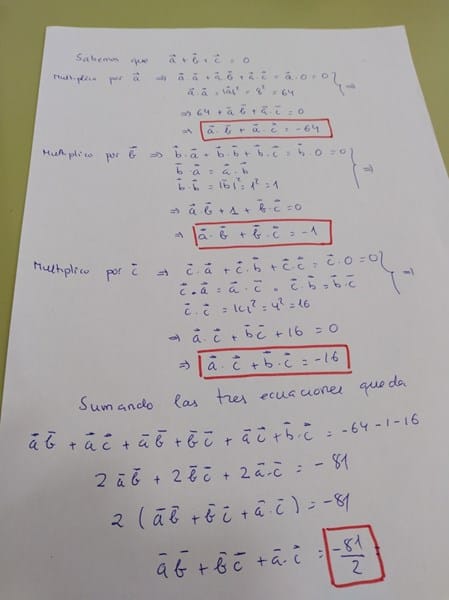 Sabemos que a⃗ + b⃗ + c⃗ = 0
Multiplico por a⃗ ⇒ a⃗ a⃗ + a⃗·b⃗ + a⃗·c⃗ = a⃗·0 = 0 } ⇒
a⃗·a⃗ = |a|² = 8² = 64
⇒ 64 + a⃗·b⃗ + a⃗·c⃗ = 0
⇒ a⃗·b⃗ + a⃗·c⃗ = -64
Multiplico por b⃗ ⇒ b⃗·a⃗ + b⃗·b⃗ + b⃗·c⃗ = b⃗·0 = 0 } ⇒
b⃗·a⃗ = a⃗·b⃗
b⃗·b⃗ = |b|² = 1² = 1
⇒ a⃗·b⃗ + 1 + b⃗·c⃗ = 0
⇒ a⃗·b⃗ + b⃗·c⃗ = -1
Multiplico por c⃗ ⇒ c⃗·a⃗ + c⃗·b⃗ + c⃗·c⃗ = c⃗·0 = 0 } ⇒
c⃗·a⃗ = a⃗·c⃗ = c⃗·b⃗ = b⃗·c⃗
c⃗·c⃗ = |c|² = 4² = 16
⇒ a⃗·c⃗ + b⃗c⃗ + 16 = 0
⇒ a⃗·c⃗ + b⃗·c⃗ = -16
Sumando las tres ecuaciones queda
a⃗b⃗ + a⃗c⃗ + a⃗b⃗ + b⃗c⃗ + a⃗c⃗ + b⃗·c⃗ = -64-1-16
2a⃗b⃗ + 2b⃗c⃗ + 2a⃗·c⃗ = -81
2(a⃗b⃗ + b⃗c⃗ + a⃗·c⃗) = -81
a⃗b⃗ + b⃗c⃗ + a⃗·c⃗ = -81/2